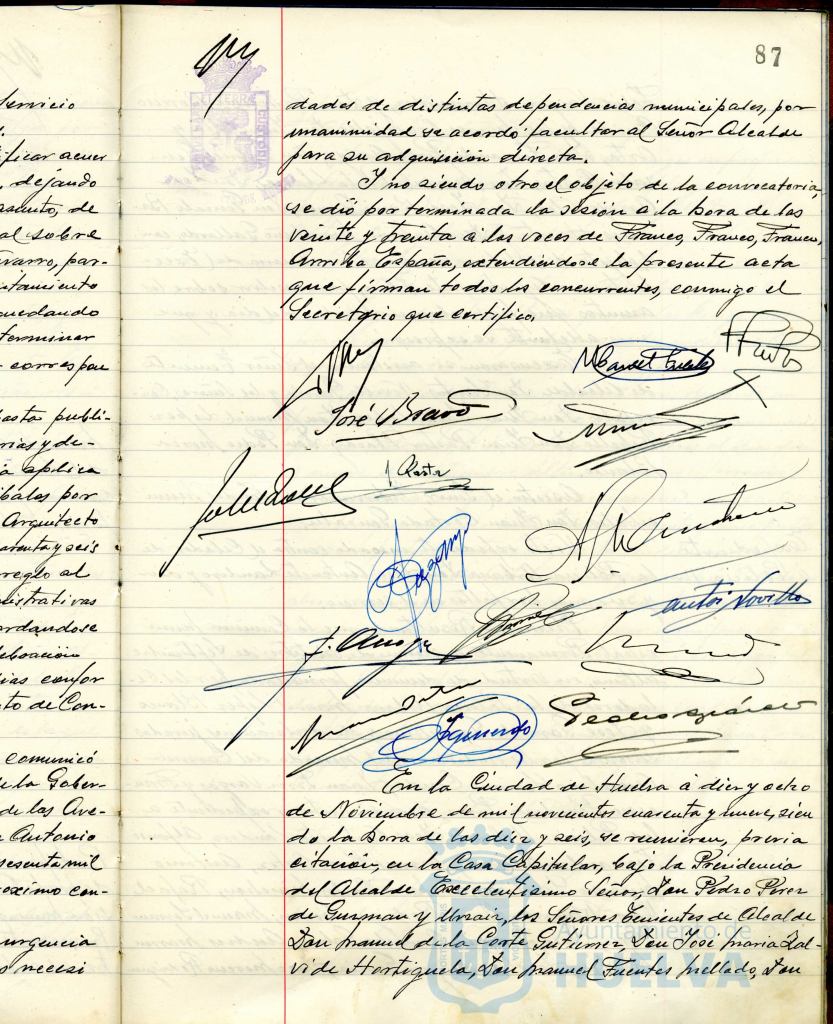 87
servicio
ificar acuer
, dejando
asunto, de
al sobre
avarro, par-
ntamiento
quedando
terminar
correspon
asta publi-
rias y de-
a aplica
bales por
Arquitecto
arenta y seis
reglo al
nistrativas
rdandose
eboación
ias confor
to de Con-
comunicó
de la Gober-
de las Ave-
Antonio
sesenta mil
oximo con-
urgencia
o necesi
dades de distintas dependencias municipales, por
unanimidad se acordó facultar al Señor Alcalde
para su adquisición directa.
Y no siendo otro el objeto de la convocatoria,
se dió por terminada la sesión a la hora de las
veinte y treinta a las voces de Franco, Franco, Franco,
Arriba España, extendiendose la presente acta
que firman todos los concurrentes, conmigo el
Secretario que certifico.
Manuel Fuentes
José Bravo
Antº Novillo
Figueredo
En la Ciudad de Huelva á diez y ocho
de Noviembre de mil novecientos cuarenta y nueve, sien
do la hora de las diez y seis, se reunieron, previa
citación, en la Casa Capitular, bajo la Presidencia
del Alcalde Excelentisimo Señor, Don Pedro Perez
de Guzman y Urzaiz, los Señores Tenientes de Alcalde
Don Manuel de la Corte Gutierrez, Don José Maria Zal-
vide Hortiguela, Don Manuel Fuentes Mellado, Don
Ayuntamiento de
HUELVA